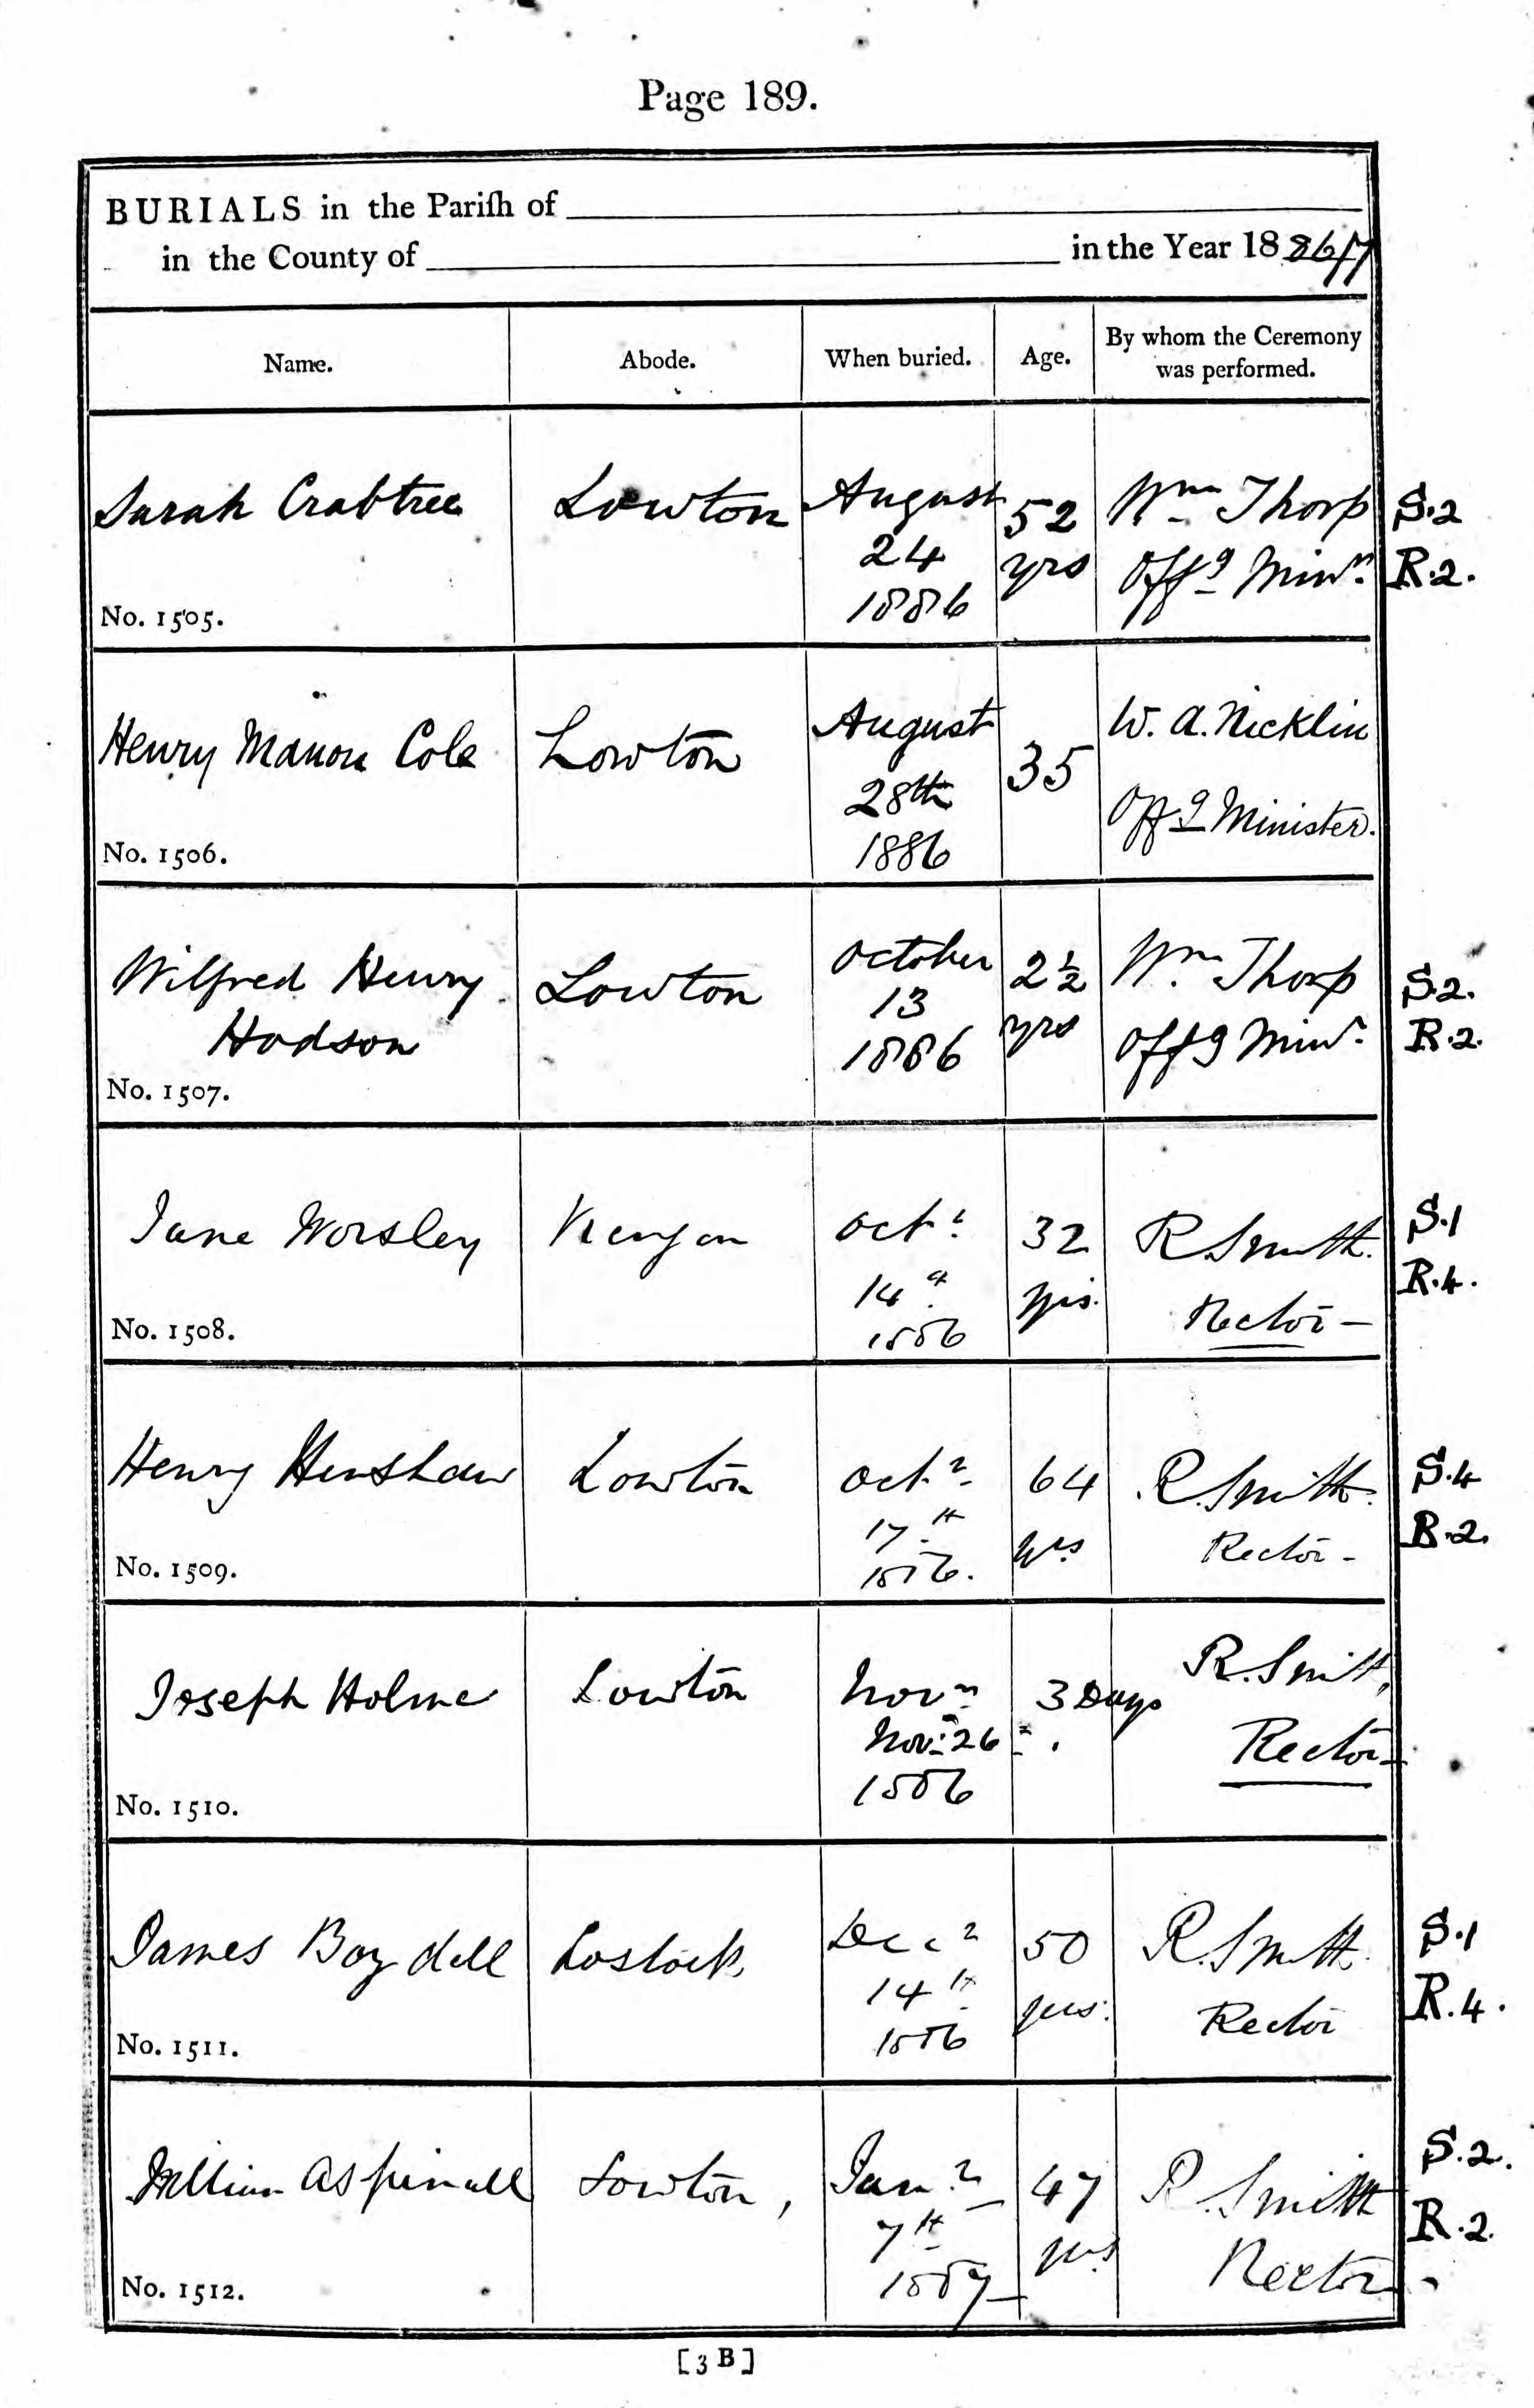 Page 189.
BURIALS in the Pariſh of
in the County of in the Year 1886/7
Name. Abode. When buried. Age. By whom the Ceremony was performed.
Sarah Crabtree Lowton August 52 Wm Thorp S.2
24 yrs Offg Minr. R.2.
1886
No. 1505.
Henry Lowton August 35 W. A. Nicklin
Cole 28th Offg Minister.
1886
No. 1506.
Wilfred Henry Lowton October 2½ Wm. Thorp S.2.
Hodson 13 yrs Offg Minr. R.2.
1886
No. 1507.
Jane Worsley Kenyon Octr. 32 R Smith. S.1
14th yrs. Rector - R.4.
1886
No. 1508.
Henry Henshaw Lowton Octr. 64 R. Smith. S.4
17th yrs Rector - R.2.
1886.
No. 1509.
Joseph Holme Lowton Novr 3 Days R. Smith,
Novr 26 Rector -
1886
No. 1510.
James Boydell Lostock, Decr 50 R. Smith. S.1
14th yrs. Rector R.4.
1886
No. 1511.
William Aspinall Lowton, Janr 47 R. Smith S.2.
7th yrs Rector - R.2.
1887
No. 1512.
[3B]